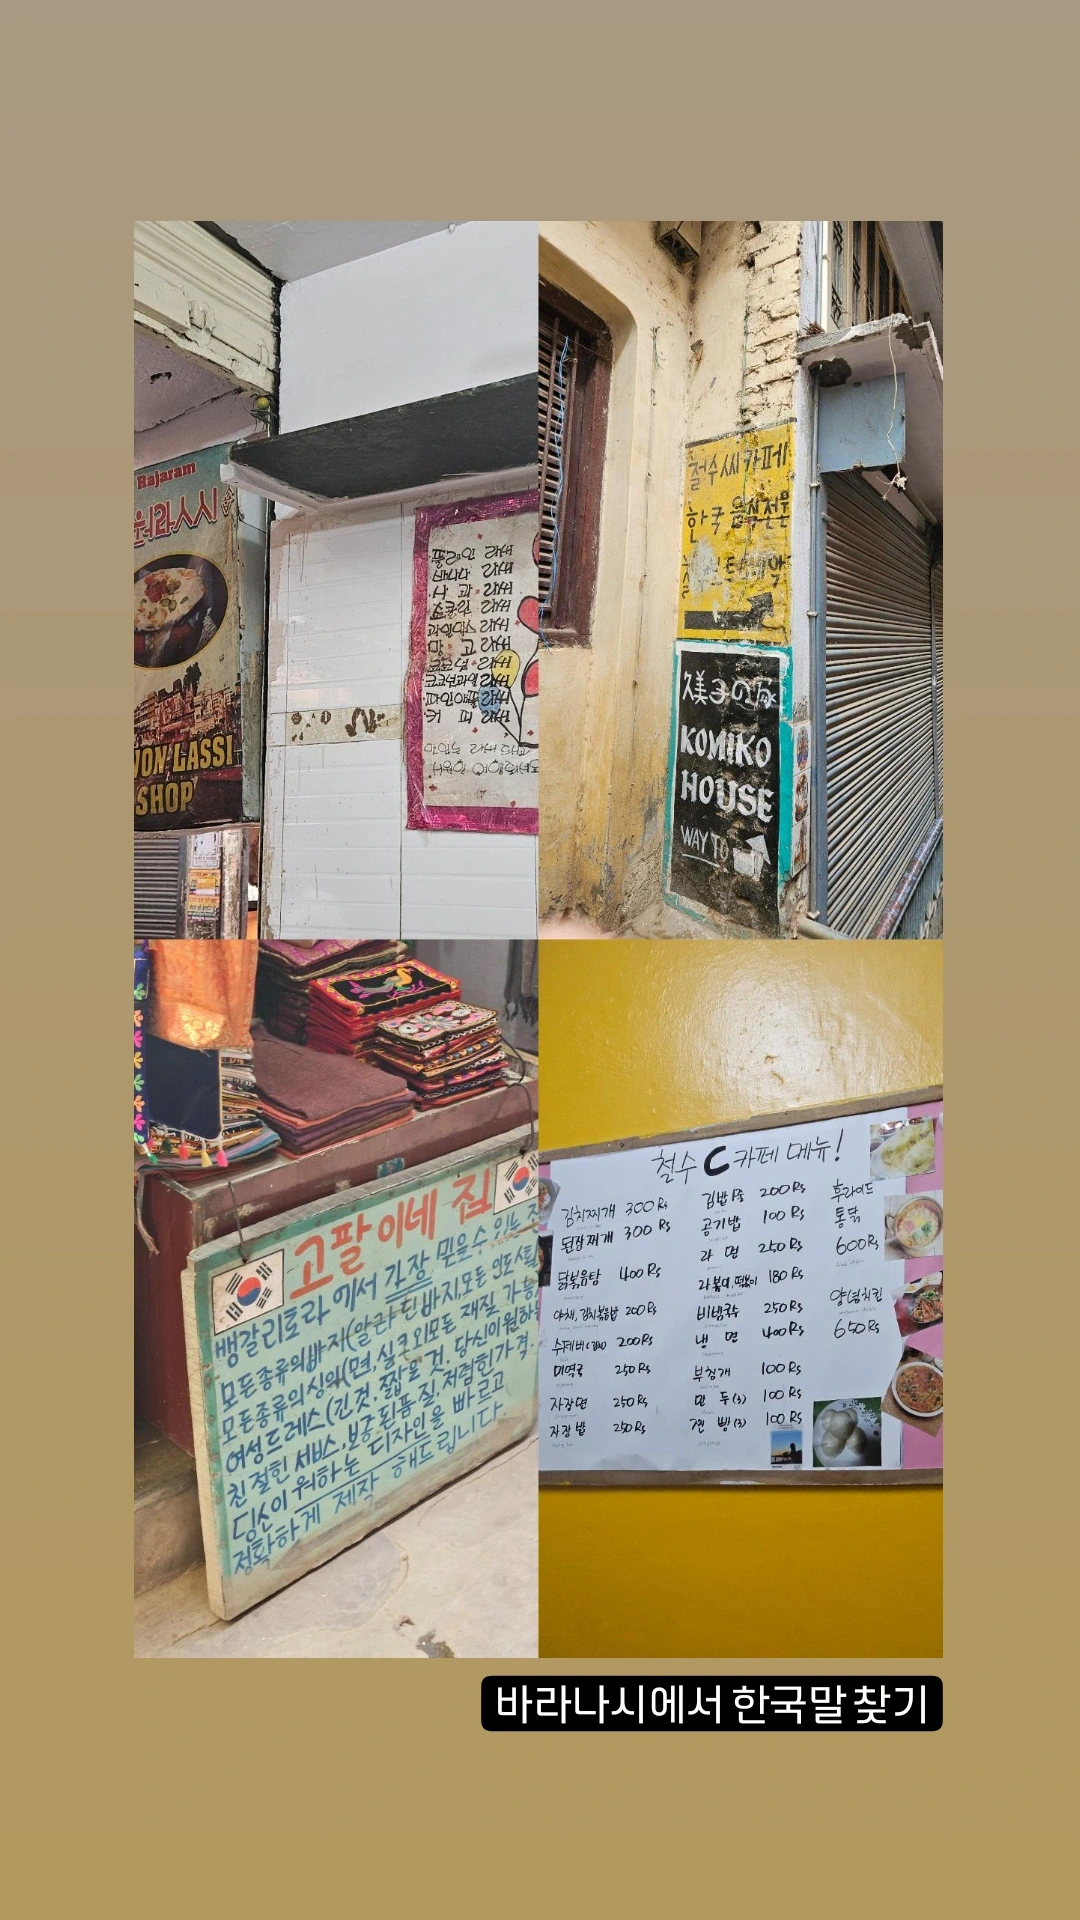 Rajaram
원라시
WON LASSI
SHOP
플레인 라씨
바나나 라씨
사 과 라씨
라씨
라씨
망 고 라씨
라씨
라씨
파인애플 라씨
커 피 라씨
철수씨카페
한국 음식전문
KOMIKO
HOUSE
WAY TO
고팔이네 집
뱅갈리토라 에서 가장 믿을수 있는
모든종류의바지(알라딘바지,모든
모든종류의상의(면,실크외모든 재질 가능
여성드레스(긴것,짧을 것, 당신이원하는
친절힌 세비스,보증된품질,저렴힌가격.
딩신이 원하는 디자인을 빠르고
정확하게 제작 해드립니다.
철수 C 카페 메뉴!
김치찌개 300 Rs
된장찌개 300 Rs
닭볶음탕 400 Rs
야채, 김치볶음밥 200 Rs
수제비 200 Rs
미역국 250 Rs
자장면 250 Rs
자장밥 250 Rs
김밥 1줄 200 Rs
공기밥 100 Rs
라 면 250 Rs
라볶이, 떡볶이 180 Rs
비빔국수 250 Rs
냉 면 400 Rs
부침개 100 Rs
만 두(3) 100 Rs
찐 빵(3) 100 Rs
후라이드
통닭
600 Rs
양념치킨
650 Rs
바라나시에서 한국말 찾기